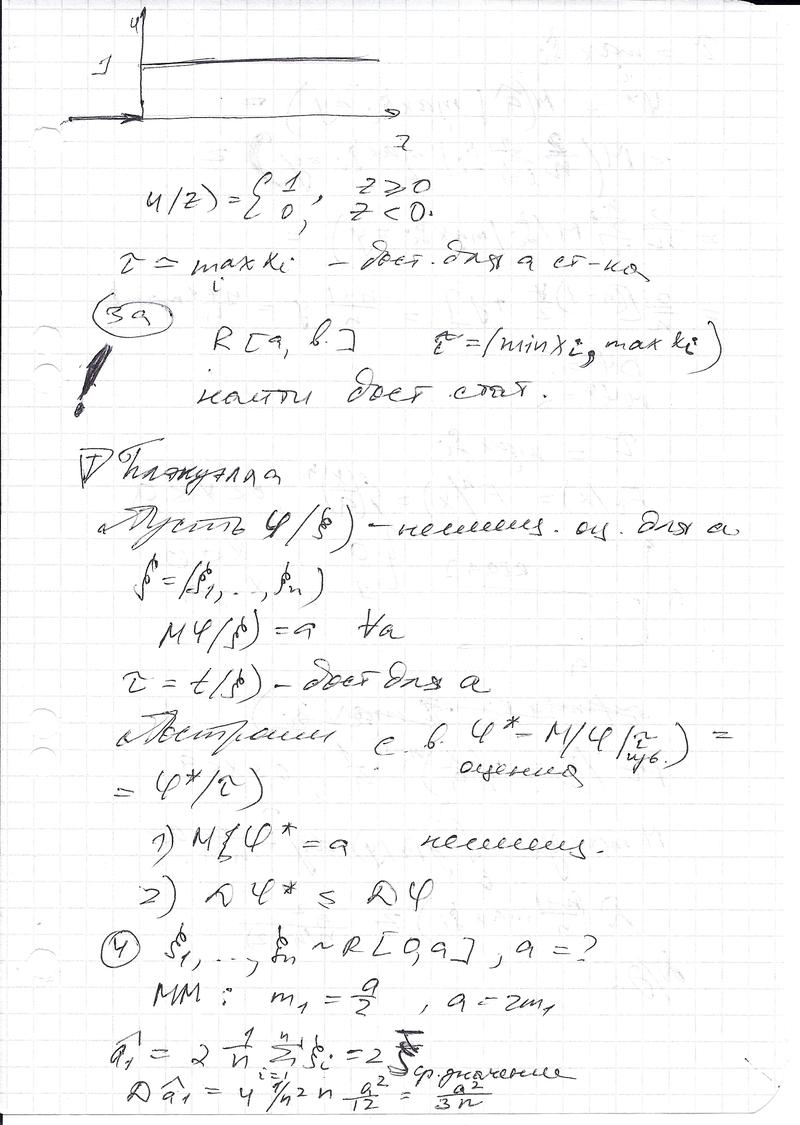 u
1
z
u(z) = { 1, z ≥ 0
0, z < 0.
τ = max xᵢ – дост. для a ст-ка
i
3a
R[a, b.] τ = (min xᵢ, max xᵢ)
! найти дост. стат.
T
Пусть φ(ξ) – несмещ. оц. для a
ξ = (ξ₁, .., ξₙ)
Mφ(ξ) = a ∀a
τ = t(ξ) – дост для a
Построим с. в. φ* – M(φ/τ) =
оценка
= φ*(τ)
1) M{φ* = a несмещ.
2) Dφ* ≤ Dφ
4 ξ₁, .., ξₙ ~ R[0,a], a = ?
MM : m₁ = a/2 , a = 2m₁
â₁ = 2 1/n Σᵢ₌₁ⁿ ξᵢ = 2 ξ̄ ср. значение
Dâ₁ = 4 1/n² n a²/12 = a²/3n